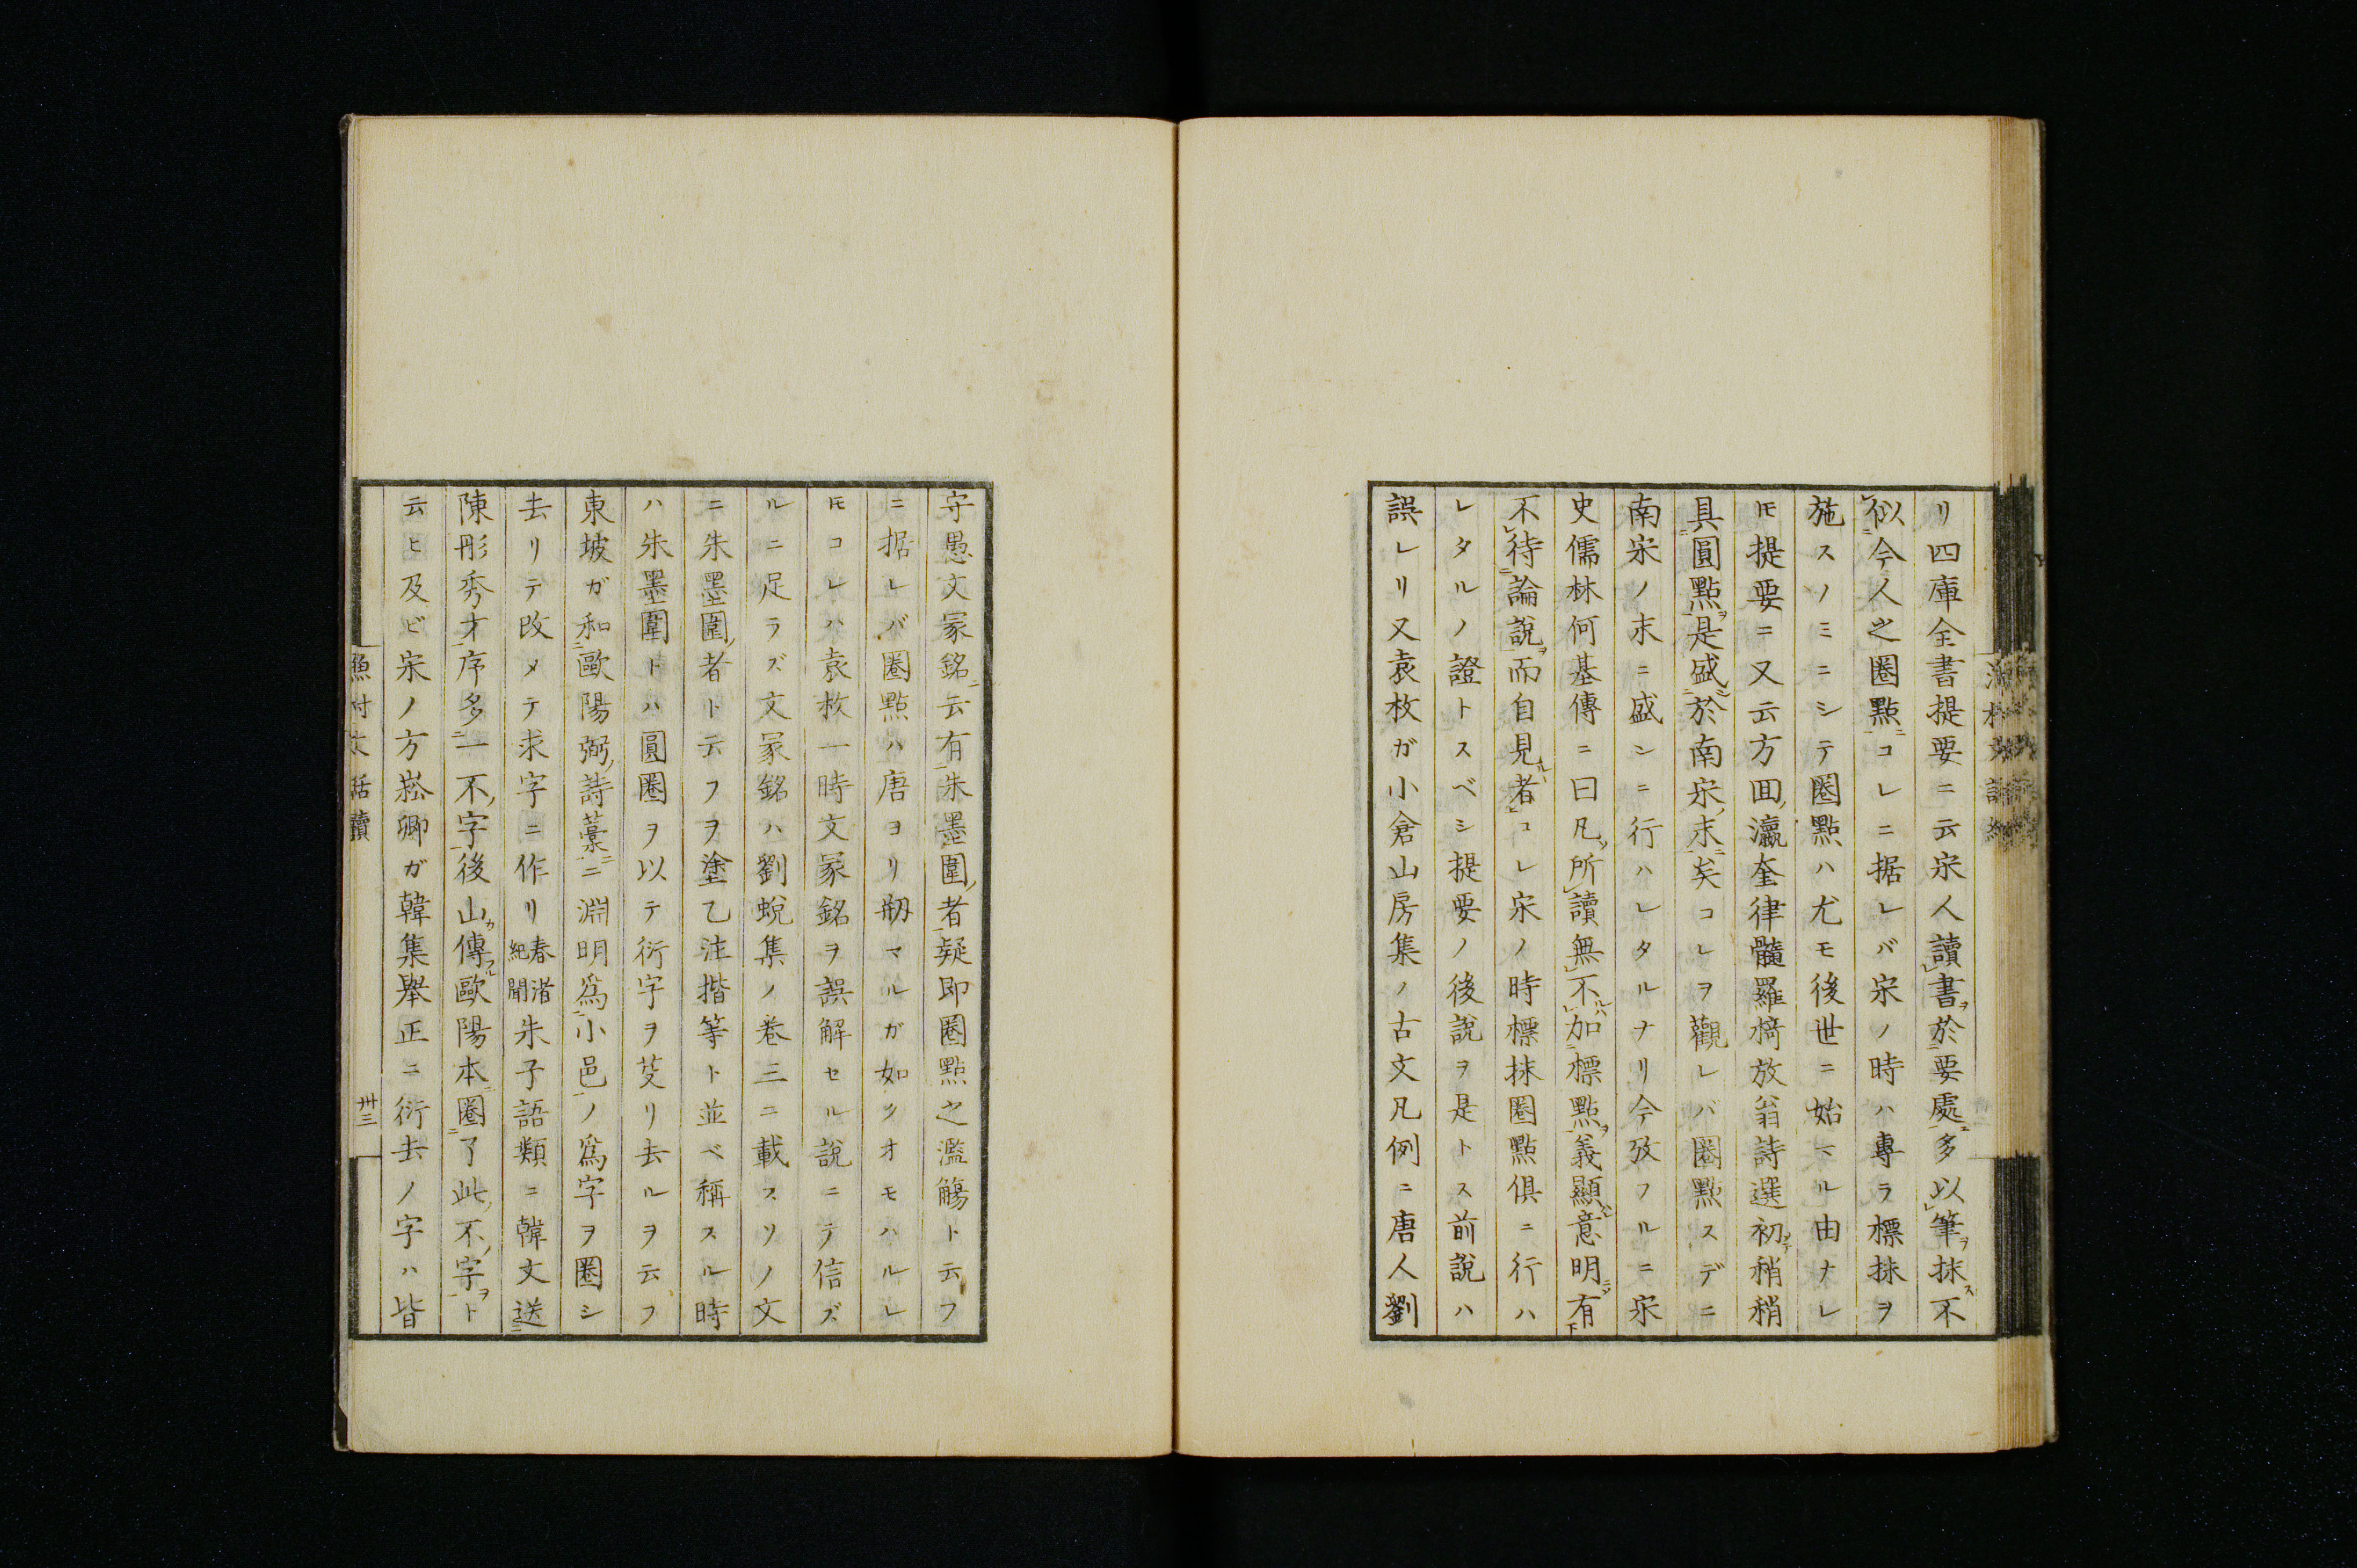 リ四庫全書提要ニ云宋人讀書於要處多以筆抹不
似今人之圈點コレニ据レバ宋ノ時ハ專ラ標抹ヲ
施スノミニシテ圈點ハ尤モ後世ニ始マル由ナレ
𪜈提要ニ又云方囬瀛奎律髓羅椅放翁詩選初稍稍
具圓點是盛於南宋末矣コレヲ觀レバ圈點スデニ
南宋ノ末ニ盛シニ行ハレタルナリ今攷フルニ宋
史儒林何基傳ニ曰凡所讀無不加標點義顯意明有
不待論說而自見者コレ宋ノ時標抹圈點俱ニ行ハ
レタルノ證トスベシ提要ノ後說ヲ是トス前說ハ
誤レリ又袁枚ガ小倉山房集ノ古文凡例ニ唐人劉
守愚文冢銘云有朱墨圍者疑即圈點之濫觴ト云フ
ニ据レバ圈點ハ唐ヨリ刱マルガ如クオモハルレ
𪜈コレハ袁枚一時文冢銘ヲ誤解セル說ニテ信ズ
ルニ足ラズ文冢銘ハ劉蛻集ノ卷三ニ載スソノ文
ニ朱墨圍者ト云フヲ塗乙注揩等ト並ベ稱スル時
ハ朱墨圍トハ圓圈ヲ以テ衍字ヲ芟リ去ルヲ云フ
東坡ガ和歐陽弼詩藁ニ淵明爲小邑ノ爲字ヲ圈シ
去リテ改メテ求字ニ作リ春渚紀聞朱子語類ニ韓文送
陳彤秀才序多一不字後山傳歐陽本圈了此不字ト
云ヒ及ビ宋ノ方崧卿ガ韓集舉正ニ衍去ノ字ハ皆
漁村文話續
卅三